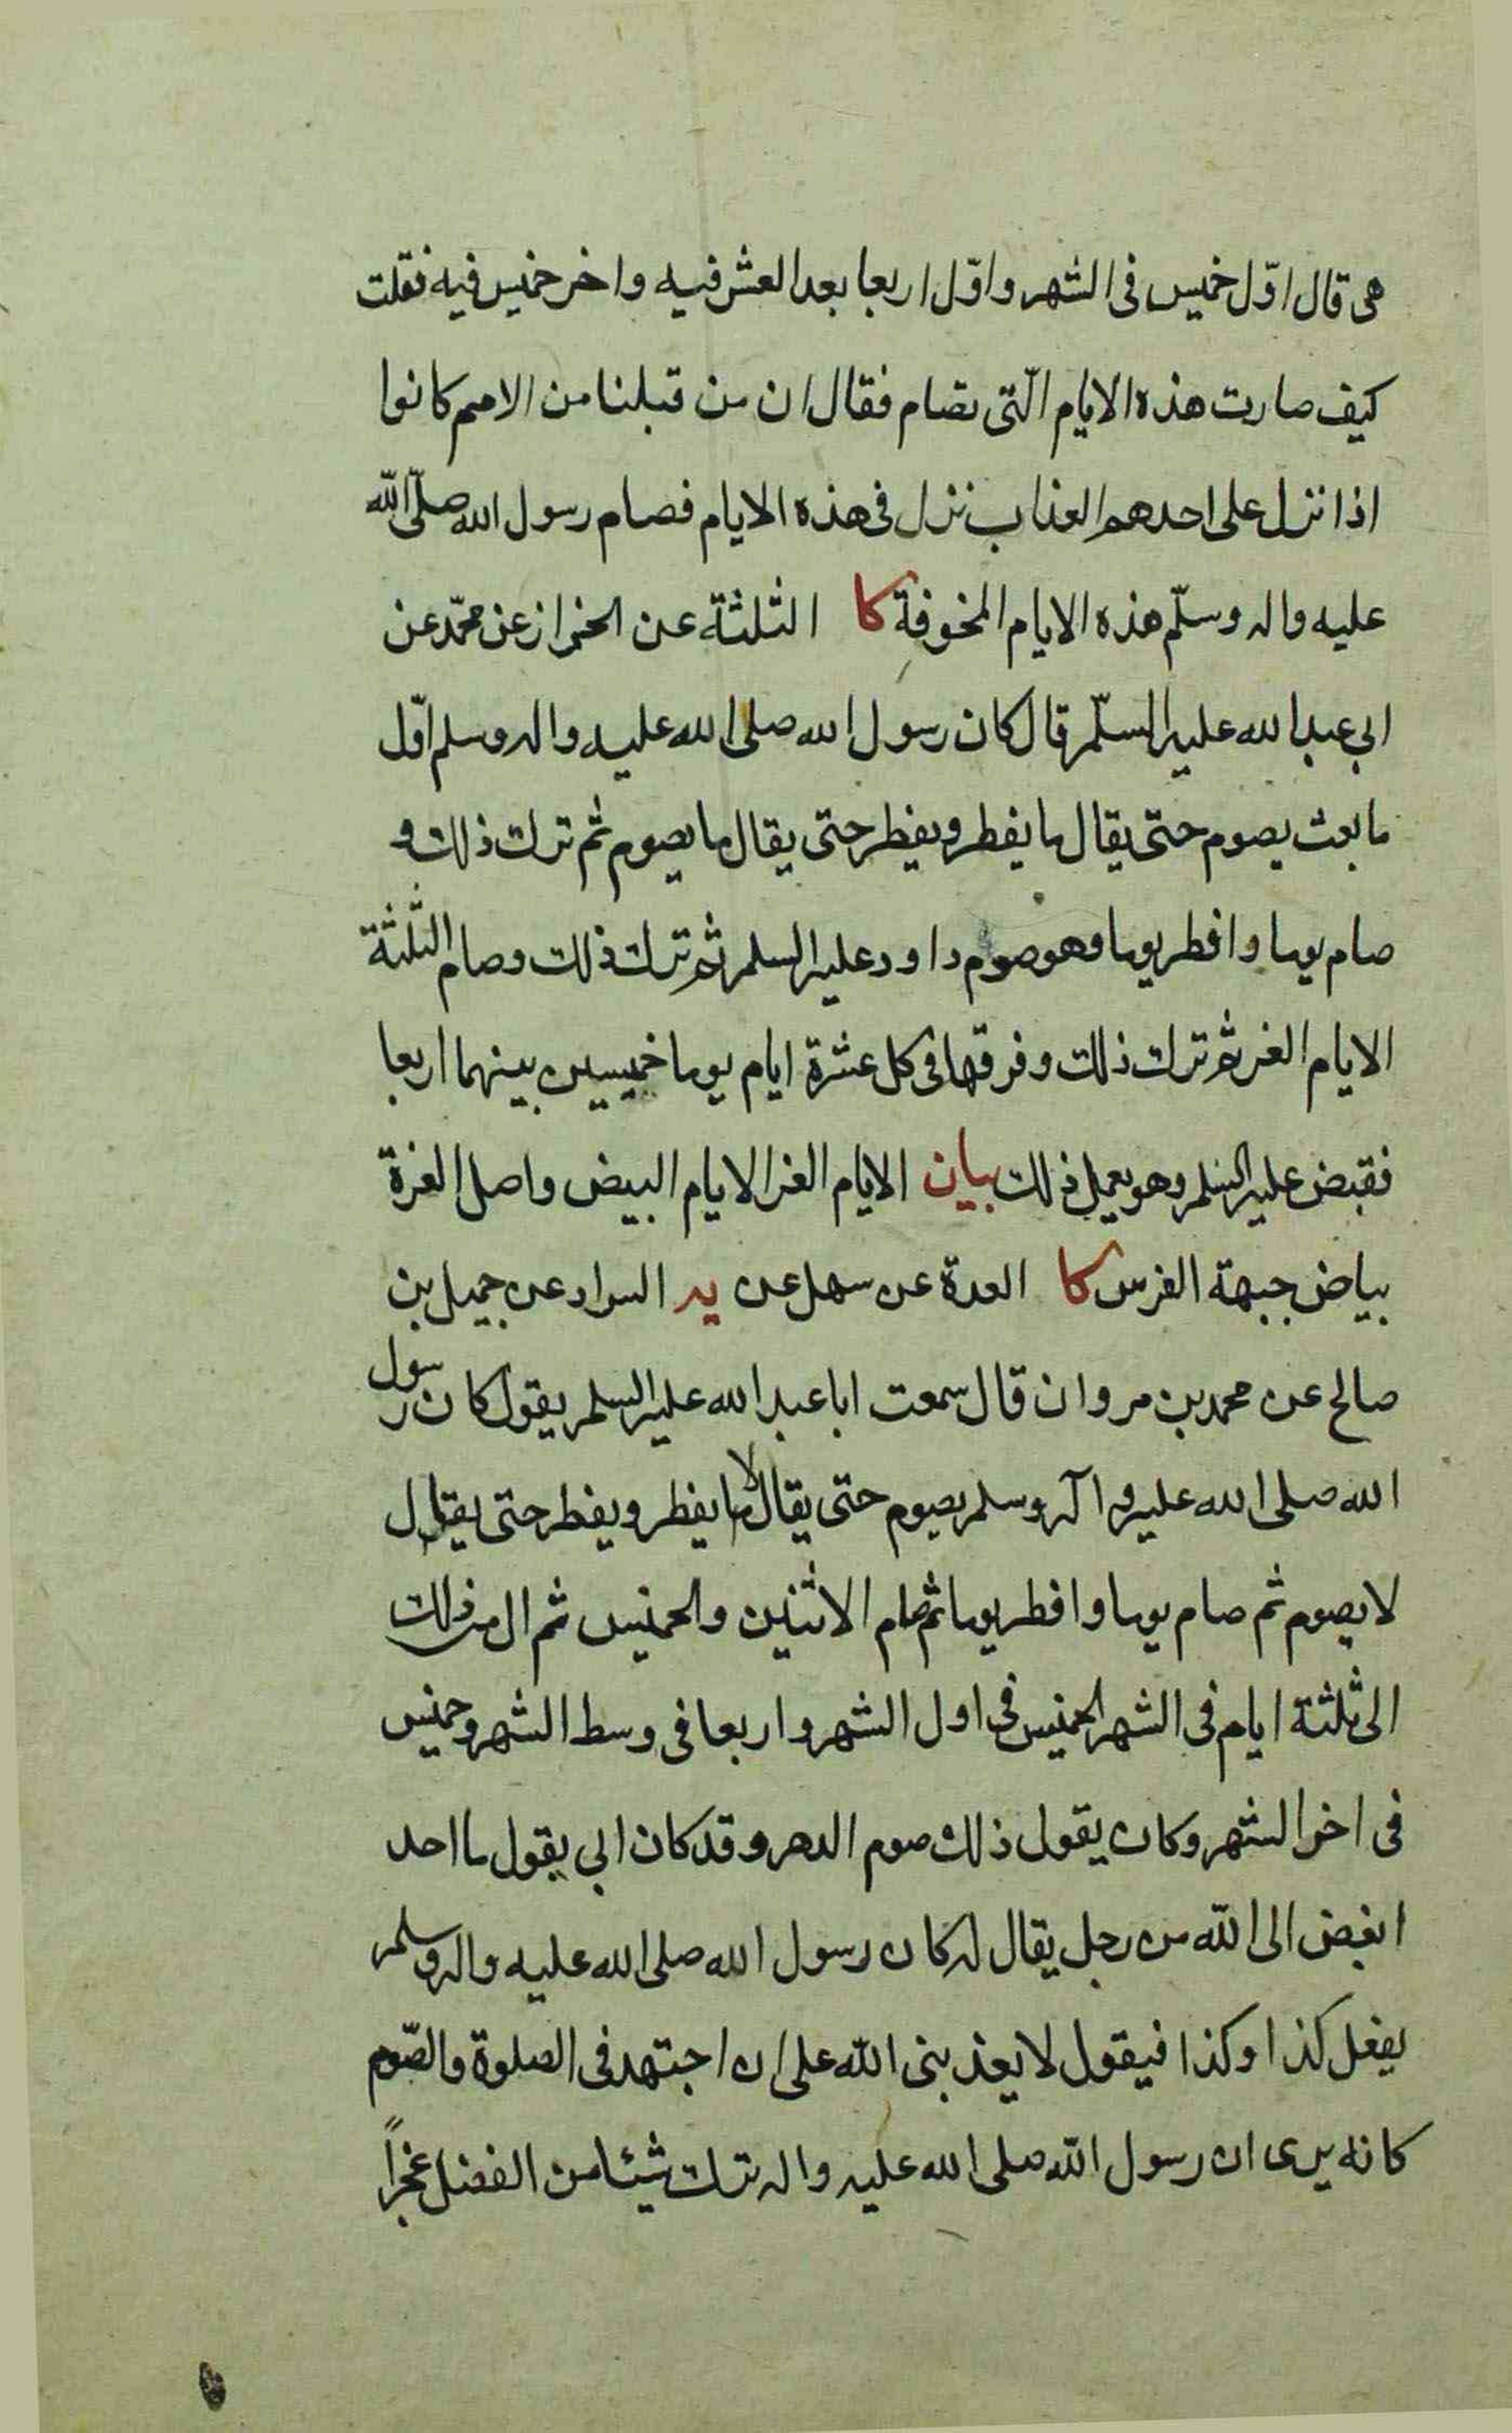 هی قال اوّل خمیس فی الشهر و اوّل اربعا بعد العشر فیه و اخر خمیس فیه فقلت
کیف صارت هذه الایام الّتی تصام فقال ان من قبلنا من الامم کانوا
اذا نزل علی احدهم العذاب نزل فی هذه الایام فصام رسول الله صلّی الله
علیه واله وسلّم هذه الایام المخوفة کا الثلثة عن الخزاز عن محمّد عن
ابی عبد الله علیه السلّم قال کان رسول الله صلی الله علیه واله وسلم اوّل
ما بعث یصوم حتی یقال ما یفطر ویفطر حتی یقال ما یصوم ثم ترك ذلك و
صام یوما وافطر یوما وهو صوم داود علیه السلم ثم ترك ذلك وصام الثلثة
الایام الغر ثم ترك ذلك وفرقها فی کل عشرة ایام یوما خمیسین بینهما اربعا
فقبض علیه السلم وهو یعمل ذلك بیان الایام الغر الایام البیض واصل الغرة
بیاض جبهة الفرس کا العدة عن سهل عن یه السراد عن جمیل بن
صالح عن محمد بن مروان قال سمعت ابا عبد الله علیه السلم یقول کان رسول
الله صلی الله علیه و آله وسلم یصوم حتی یقال لا یفطر ویفطر حتی یقال
لا یصوم ثم صام یوما وافطر یوما ثم صام الاثنین والخمیس ثم ال من ذلك
الی ثلثة ایام فی الشهر الخمیس فی اول الشهر واربعا فی وسط الشهر وخمیس
فی اخر الشهر وکان یقول ذلك صوم الدهر وقد کان ابی یقول ما احد
ابغض الی الله من رجل یقال له کان رسول الله صلی الله علیه واله وسلم
یفعل کذا وکذا فیقول لا یعذبنی الله علی ان اجتهد فی الصلوة والصّوم
کانه یری ان رسول الله صلی الله علیه واله ترك شیئا من الفضل عجزاً